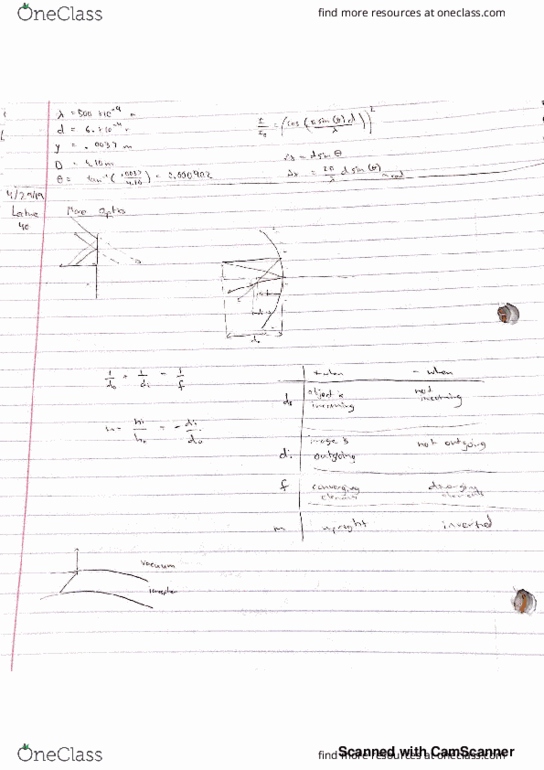 OneClass
find more resources at oneclass.com
λ = 500 ×10⁻⁹ m
y = .0037 m
D = 4.10 m
θ = tan⁻¹(.0037/4.10) =
d sin θ
4/29/19
Lecture
40
More Optics
1/d₀ + 1/di = 1/f
m = hi/h₀ = - di/d₀
+ when
- when
d₀
object is
incoming
not
incoming
di
image is
outgoing
not outgoing
f
converging
elements
diverging
elements
m
upright
inverted
vacuum
OneClass
find more resources at oneclass.com
Scanned with CamScanner